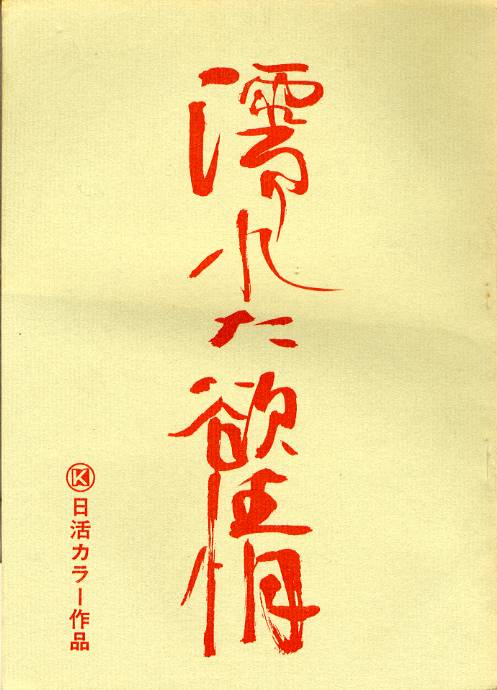 濡れた欲情
Ⓚ日活カラー作品